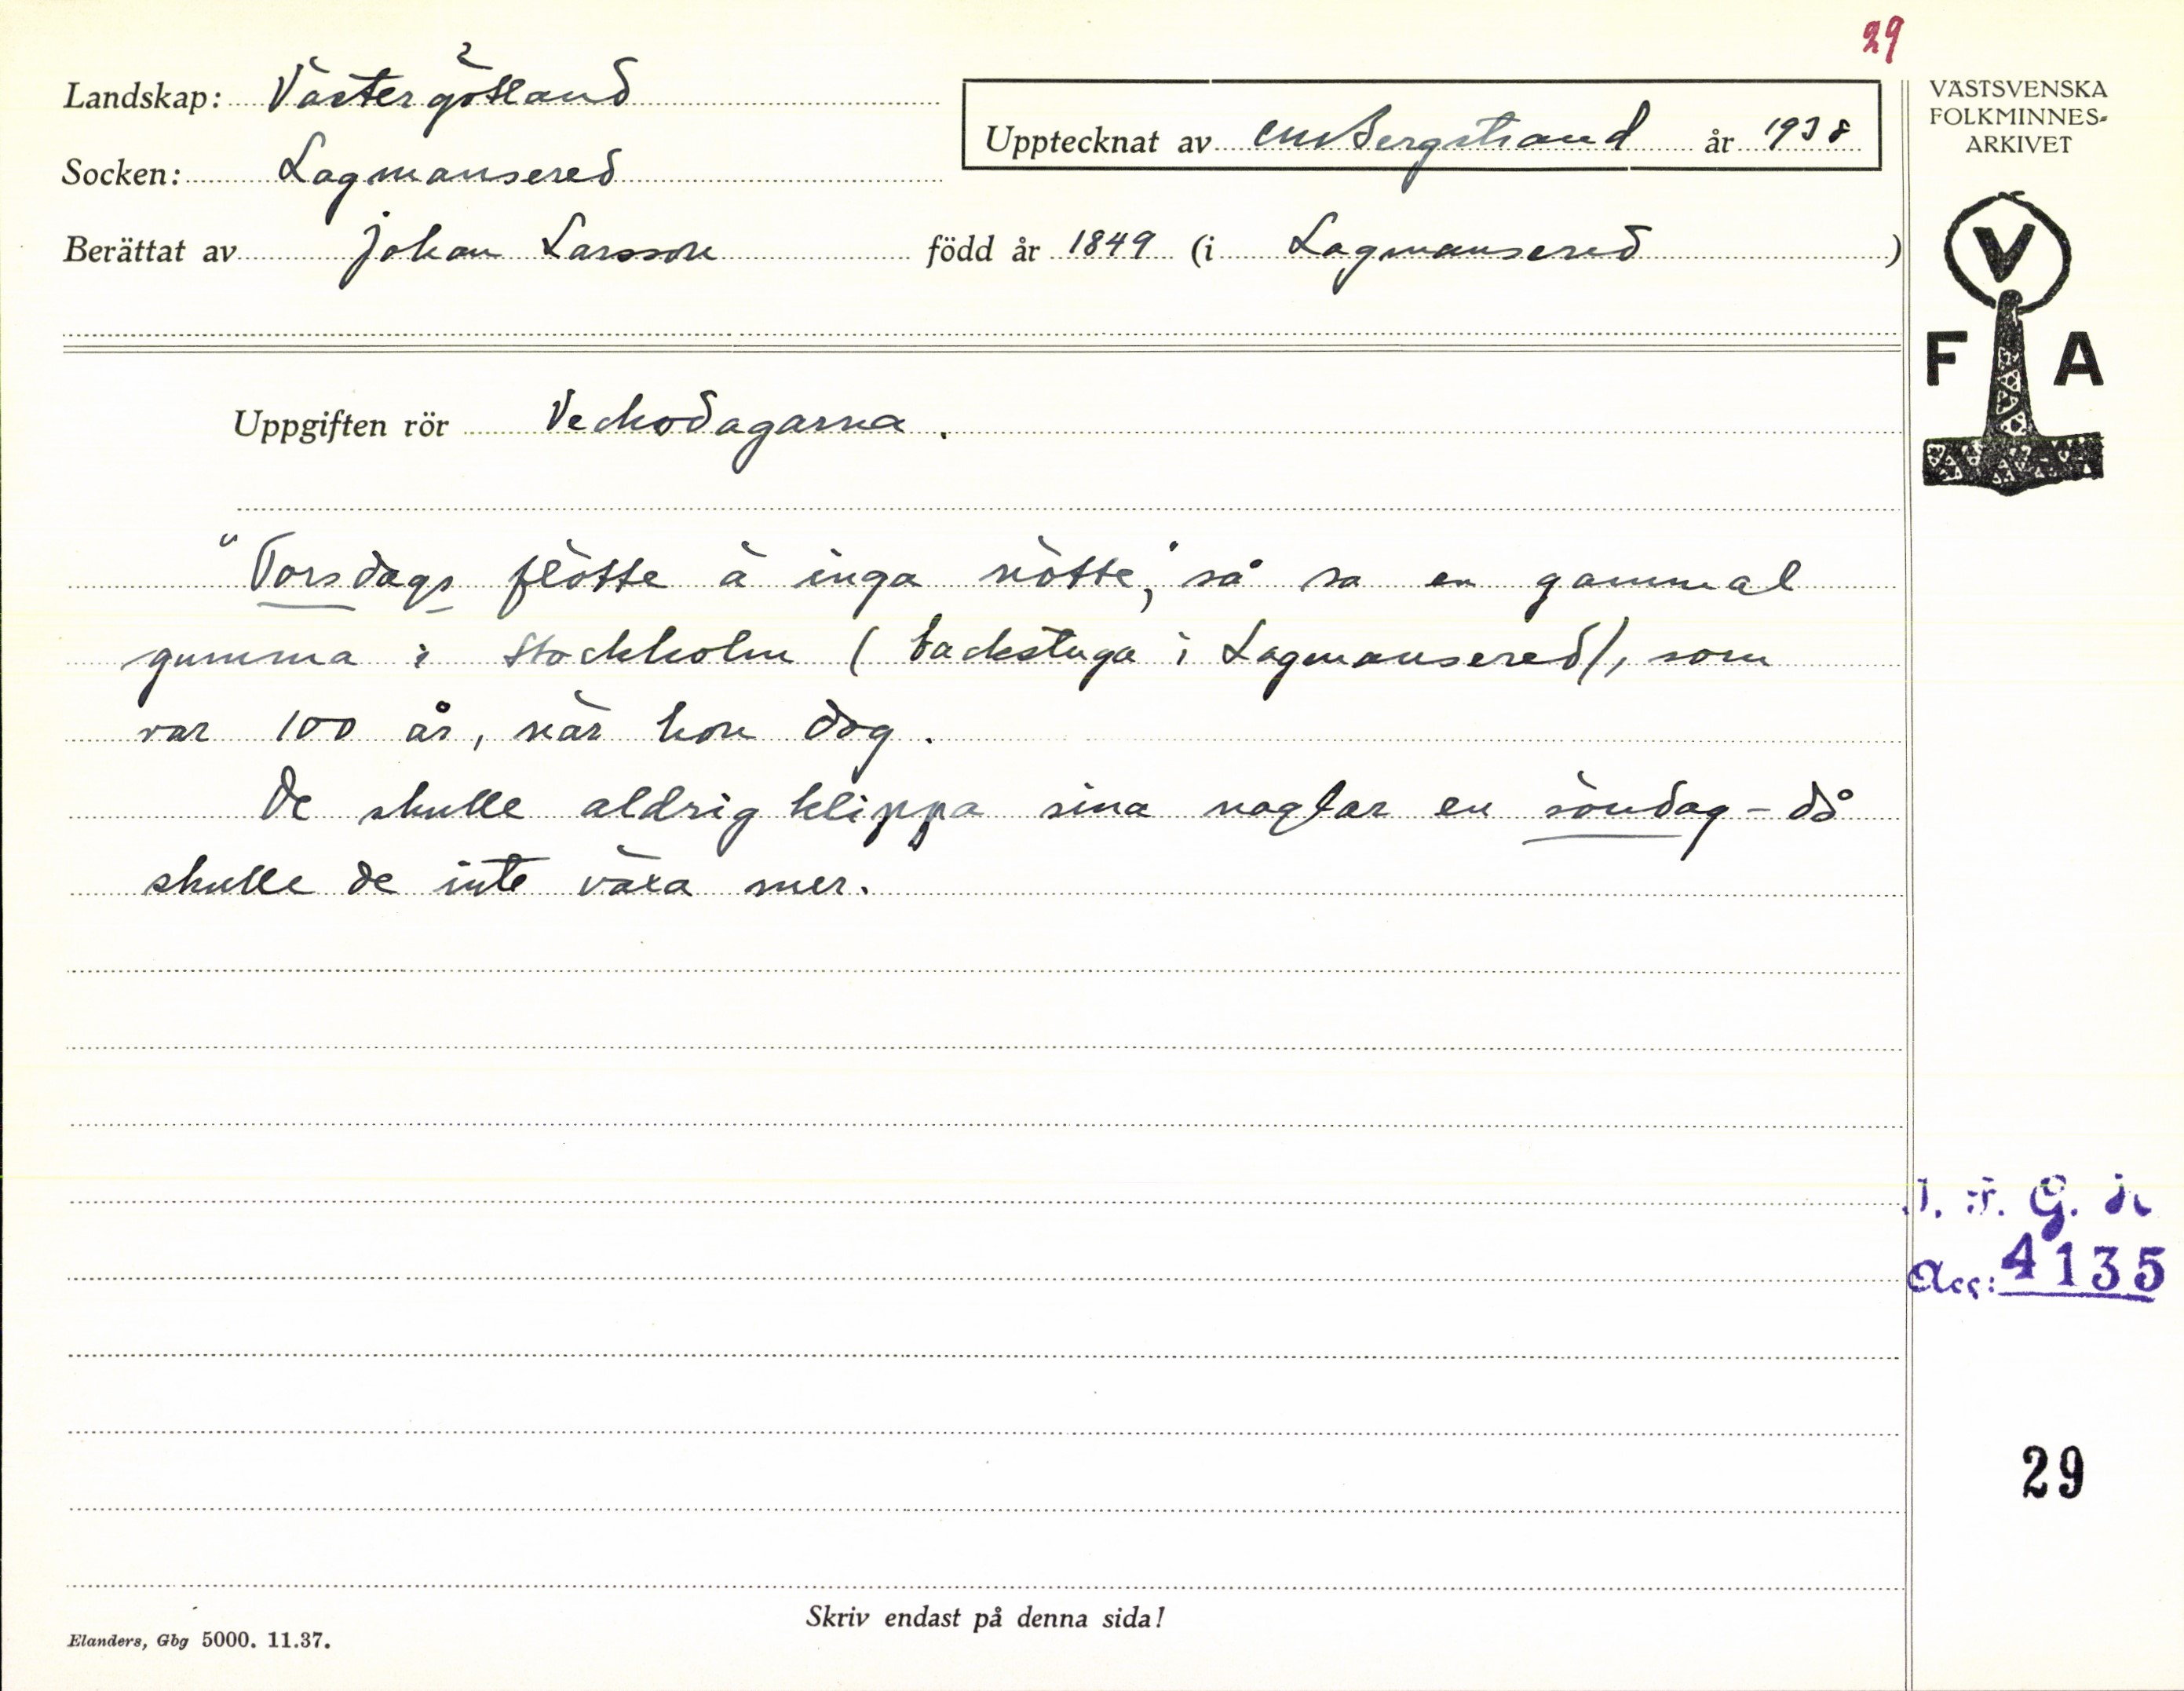 29
Landskap: Västergötland
Upptecknat av CM Bergstrand år 1938
Socken: Lagmansered
Berättat av Johan Larsson född år 1849 (i Lagmansered)
VÄSTSVENSKA
FOLKMINNES-
ARKIVET
V
F A
Uppgiften rör Veckodagarna.
"Torsdags flötte ä inga nötte," så sa en gammal
gumma i Stockholm (backstuga i Lagmansered), som
var 100 år, när hon dog.
De skulle aldrig klippa sina naglar en söndag - då
skulle de inte växa mer.
Acc: 4135
29
Skriv endast på denna sida!
Elanders, Gbg 5000. 11.37.